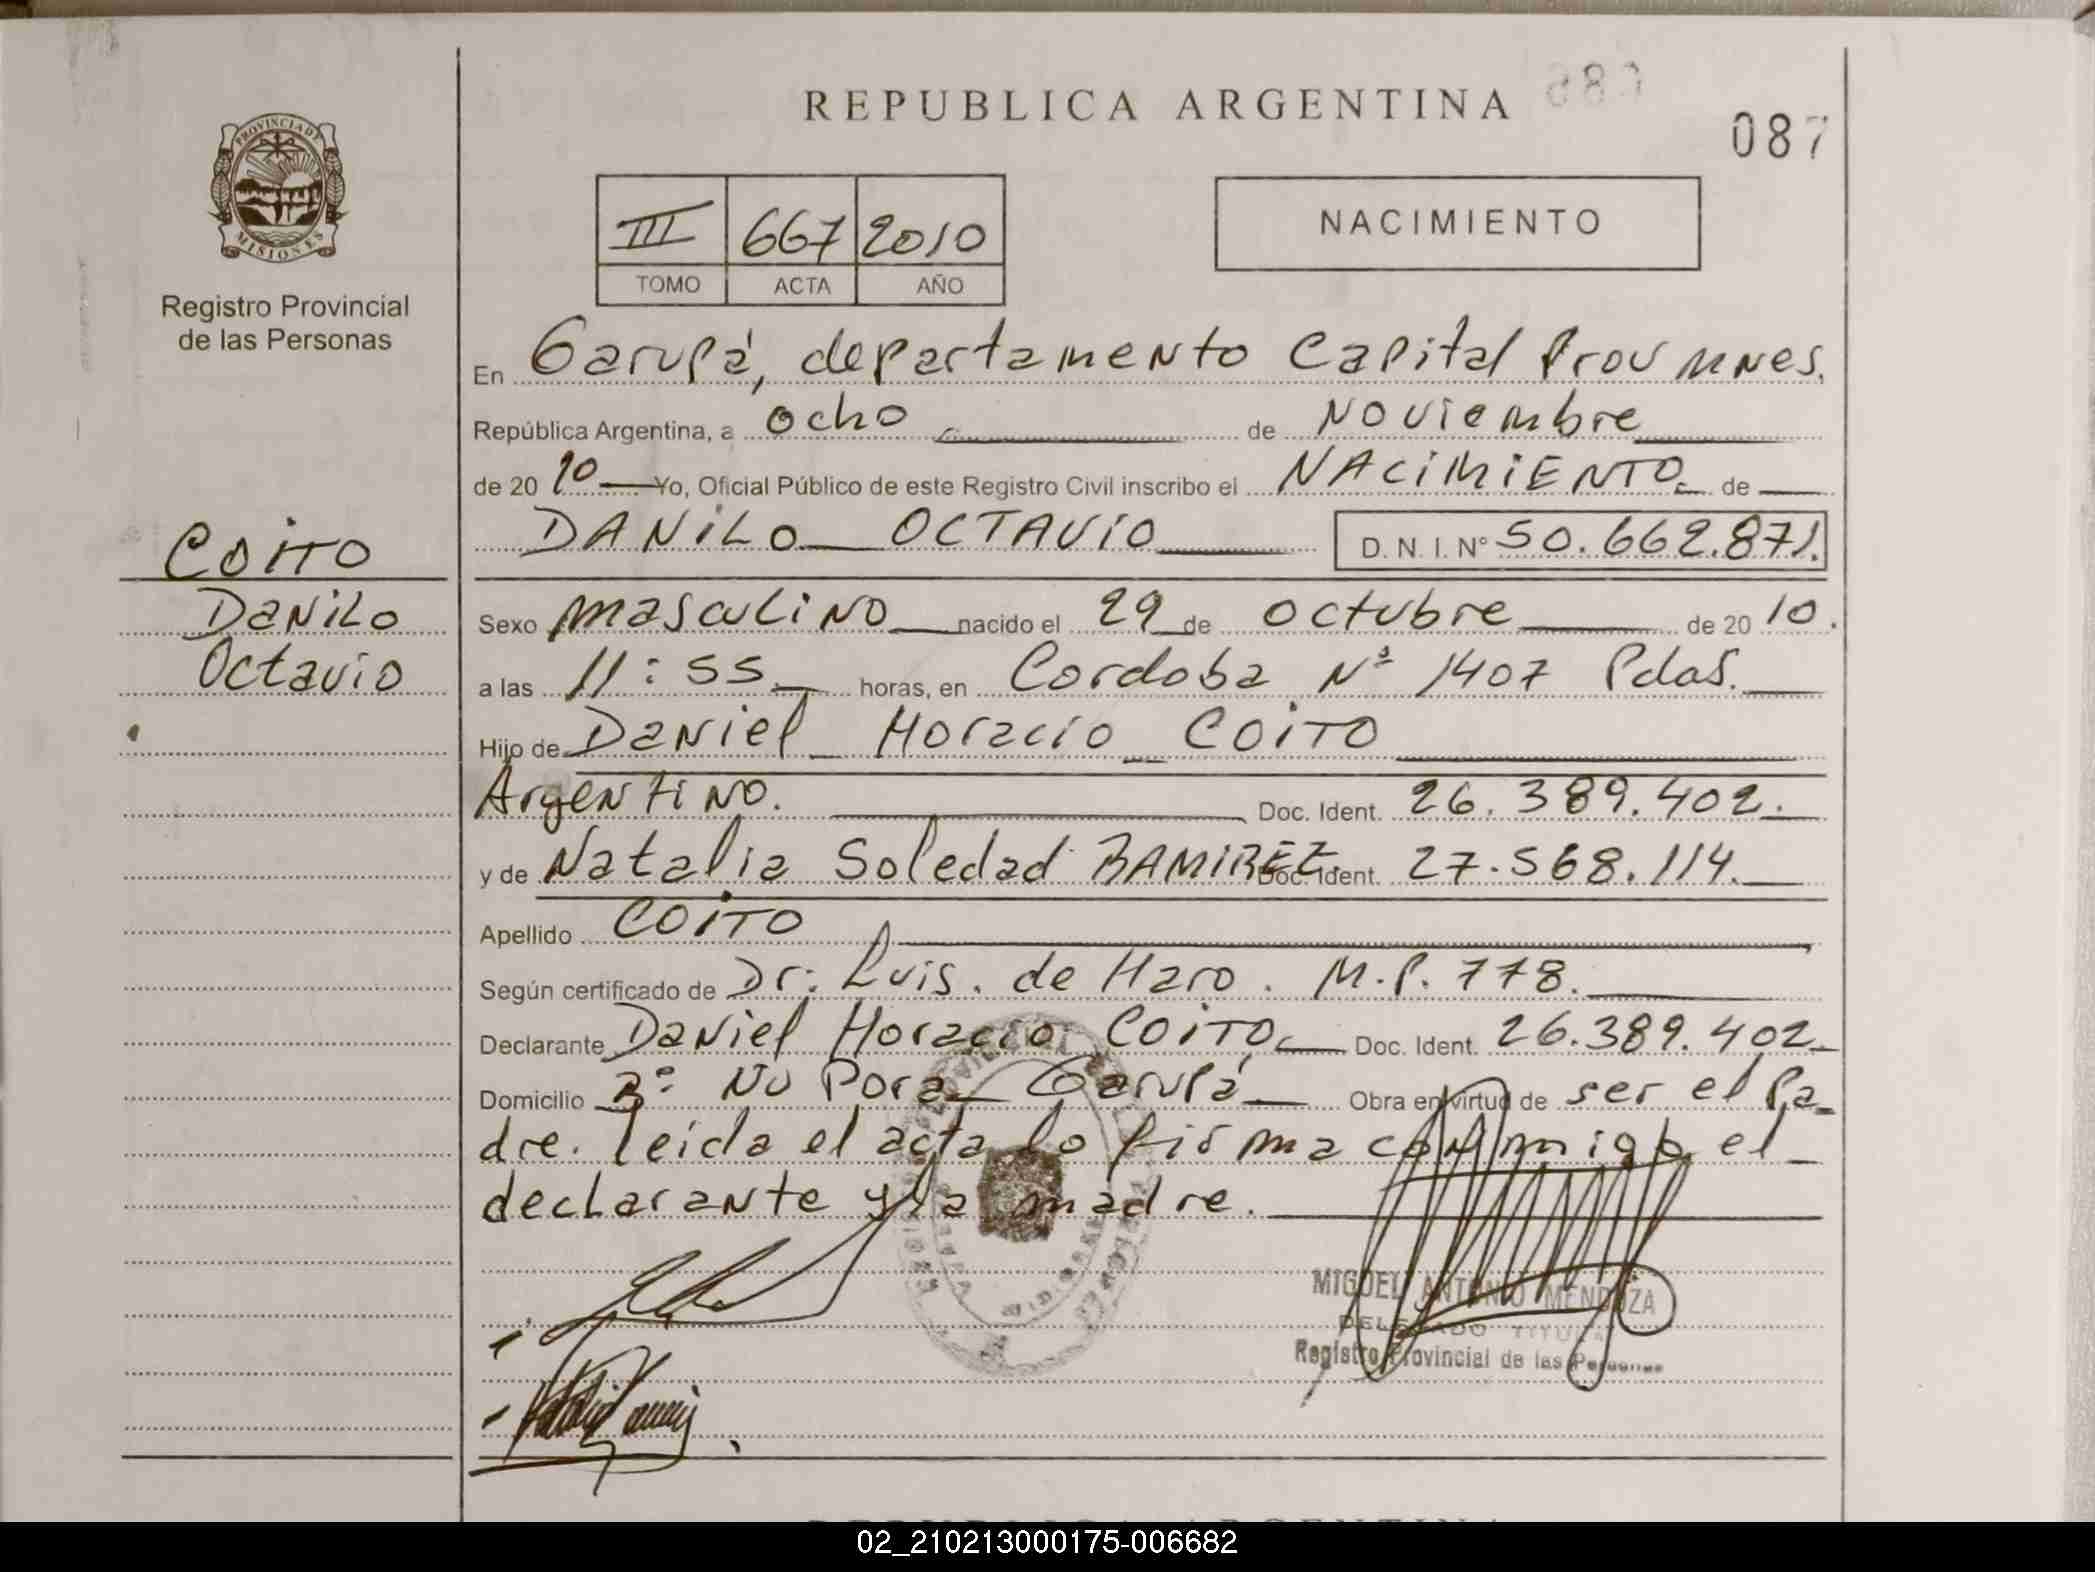 REPUBLICA ARGENTINA
087
PROVINCIA DE
MISIONES
Registro Provincial
de las Personas
III 667 2010
TOMO ACTA AÑO
NACIMIENTO
En Garupá, departamento Capital Prov Mnes.
República Argentina, a ocho de Noviembre
de 20 10 Yo, Oficial Público de este Registro Civil inscribo el NACIMIENTO de
DANILO OCTAVIO D. N. I. Nº 50.662.871.
COITO
Danilo
Octavio
Sexo masculino nacido el 29 de octubre de 20 10.
a las 11:55 horas, en Cordoba Nº 1407 Pdas.
Hijo de Daniel Horacio COITO
Argentino. Doc. Ident. 26.389.402.
y de Natalia Soledad RAMIREZ Doc. Ident. 27.568.114.
Apellido COITO
Según certificado de Dr. Luis. de Haro. M.P. 778.
Declarante Daniel Horacio COITO Doc. Ident. 26.389.402
Domicilio Bº Ñu Pora Garupá Obra en virtud de ser el pa-
dre. leida el acta lo firma conmigo el
declarante y la madre.
MIGUEL ANTONIO MENDOZA
DELEGADO TITULAR
Registro Provincial de las Personas
02_210213000175-006682